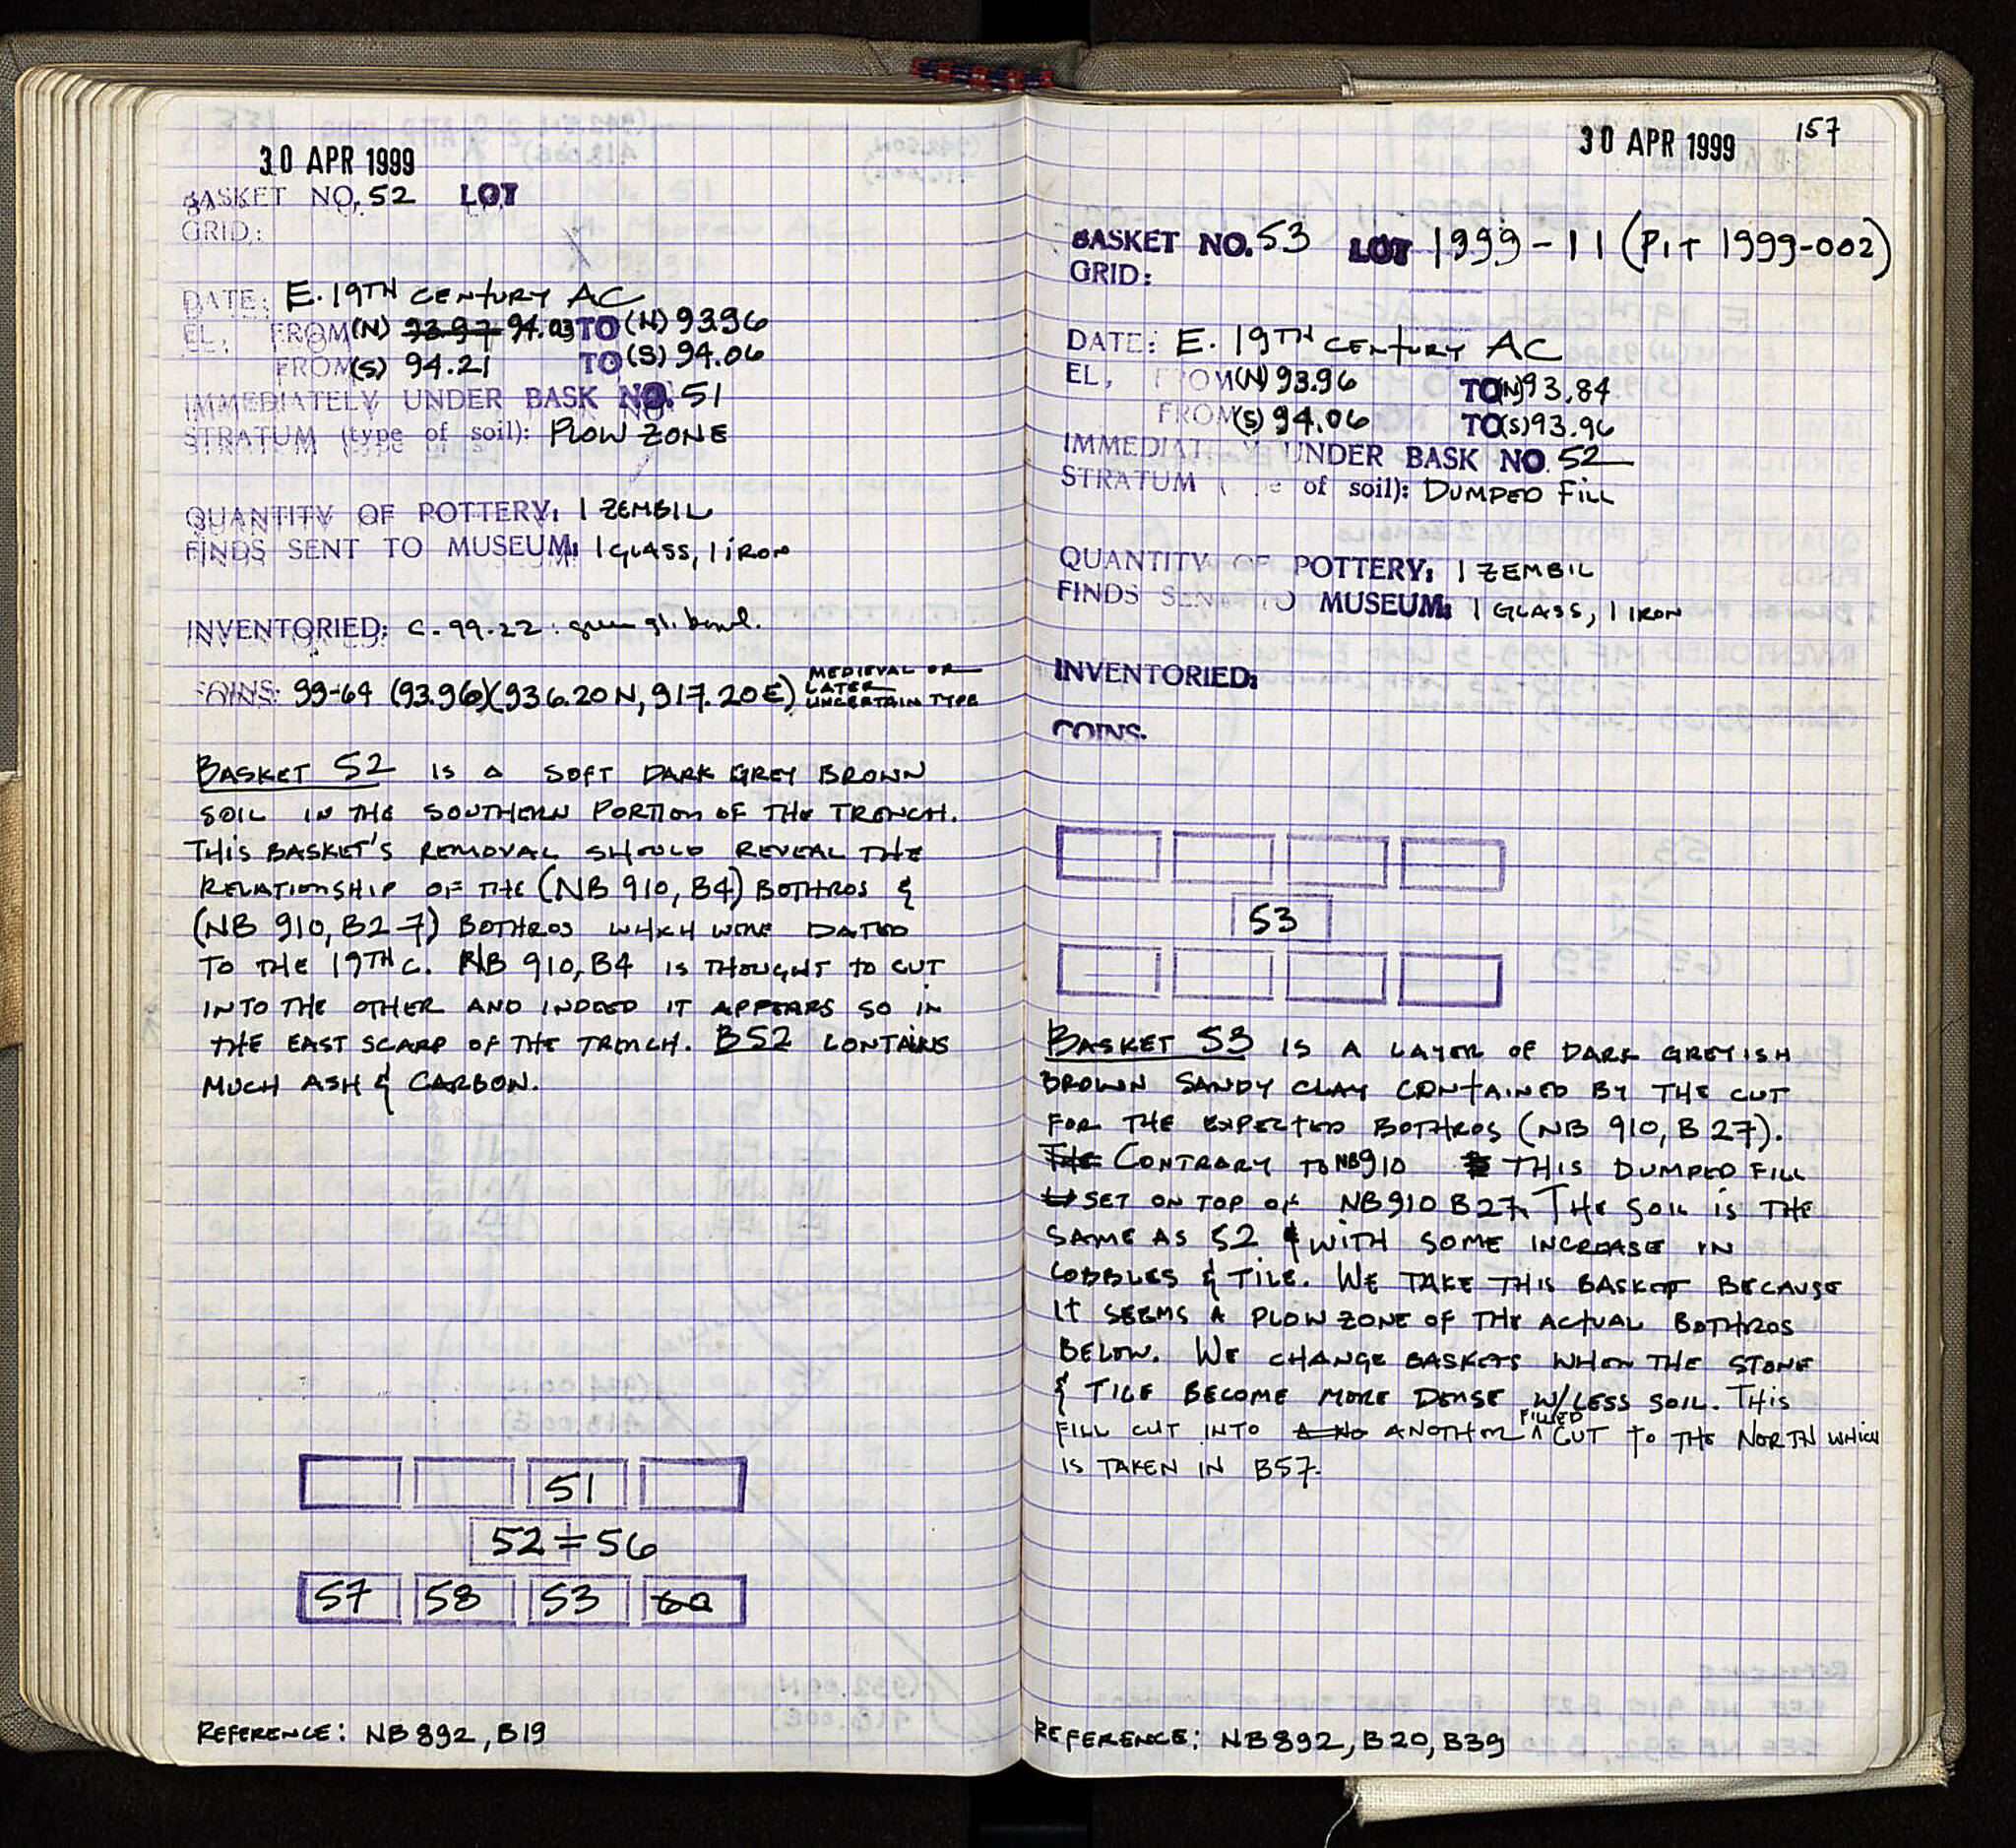 30 APR 1999
BASKET NO. 52 LOT
GRID:
DATE: E. 19TH CENTURY AC
EL, FROM (N) 93.97 94.03 TO (N) 93.96
FROM (S) 94.21 TO (S) 94.06
IMMEDIATELY UNDER BASK NO. 51
STRATUM (type of soil): PLOW ZONE
QUANTITY OF POTTERY: 1 ZEMBIL
FINDS SENT TO MUSEUM: 1 GLASS, 1 IRON
INVENTORIED: C-99-22: green gl. bowl.
COINS: 99-64 (93.96)(936.20 N, 917.20 E) MEDIEVAL OR
LATER
UNCERTAIN TYPE
BASKET 52 IS A SOFT DARK GREY BROWN
SOIL IN THE SOUTHERN PORTION OF THE TRENCH.
THIS BASKET'S REMOVAL SHOULD REVEAL THE
RELATIONSHIP OF THE (NB 910, B4) BOTHROS &
(NB 910, B27) BOTHROS WHICH WERE DATED
TO THE 19TH C. NB 910, B4 IS THOUGHT TO CUT
INTO THE OTHER AND INDEED IT APPEARS SO IN
THE EAST SCARP OF THE TRENCH. B52 CONTAINS
MUCH ASH & CARBON.
51
52 = 56
57 58 53 60
REFERENCE: NB 892, B19
30 APR 1999 157
BASKET NO. 53 LOT 1999-11 (PIT 1999-002)
GRID:
DATE: E. 19TH CENTURY AC
EL, FROM (N) 93.96 TO (N) 93.84
FROM (S) 94.06 TO (S) 93.96
IMMEDIAT Y UNDER BASK NO. 52
STRATUM ( e of soil): DUMPED FILL
QUANTITY OF POTTERY: 1 ZEMBIL
FINDS SENT TO MUSEUM: 1 GLASS, 1 IRON
INVENTORIED:
COINS.
53
BASKET 53 IS A LAYER OF DARK GREYISH
BROWN SANDY CLAY CONTAINED BY THE CUT
FOR THE EXPECTED BOTHROS (NB 910, B 27).
THE CONTRARY TO NB910 THIS DUMPED FILL
SET ON TOP OF NB910 B27. THE SOIL IS THE
SAME AS 52 & WITH SOME INCREASE IN
COBBLES & TILE. WE TAKE THIS BASKET BECAUSE
IT SEEMS A PLOW ZONE OF THE ACTUAL BOTHROS
BELOW. WE CHANGE BASKETS WHEN THE STONE
& TILE BECOME MORE DENSE W/LESS SOIL. THIS
FILL CUT INTO ANOTHER FILLED CUT TO THE NORTH WHICH
IS TAKEN IN B57.
REFERENCE: NB892, B20, B39